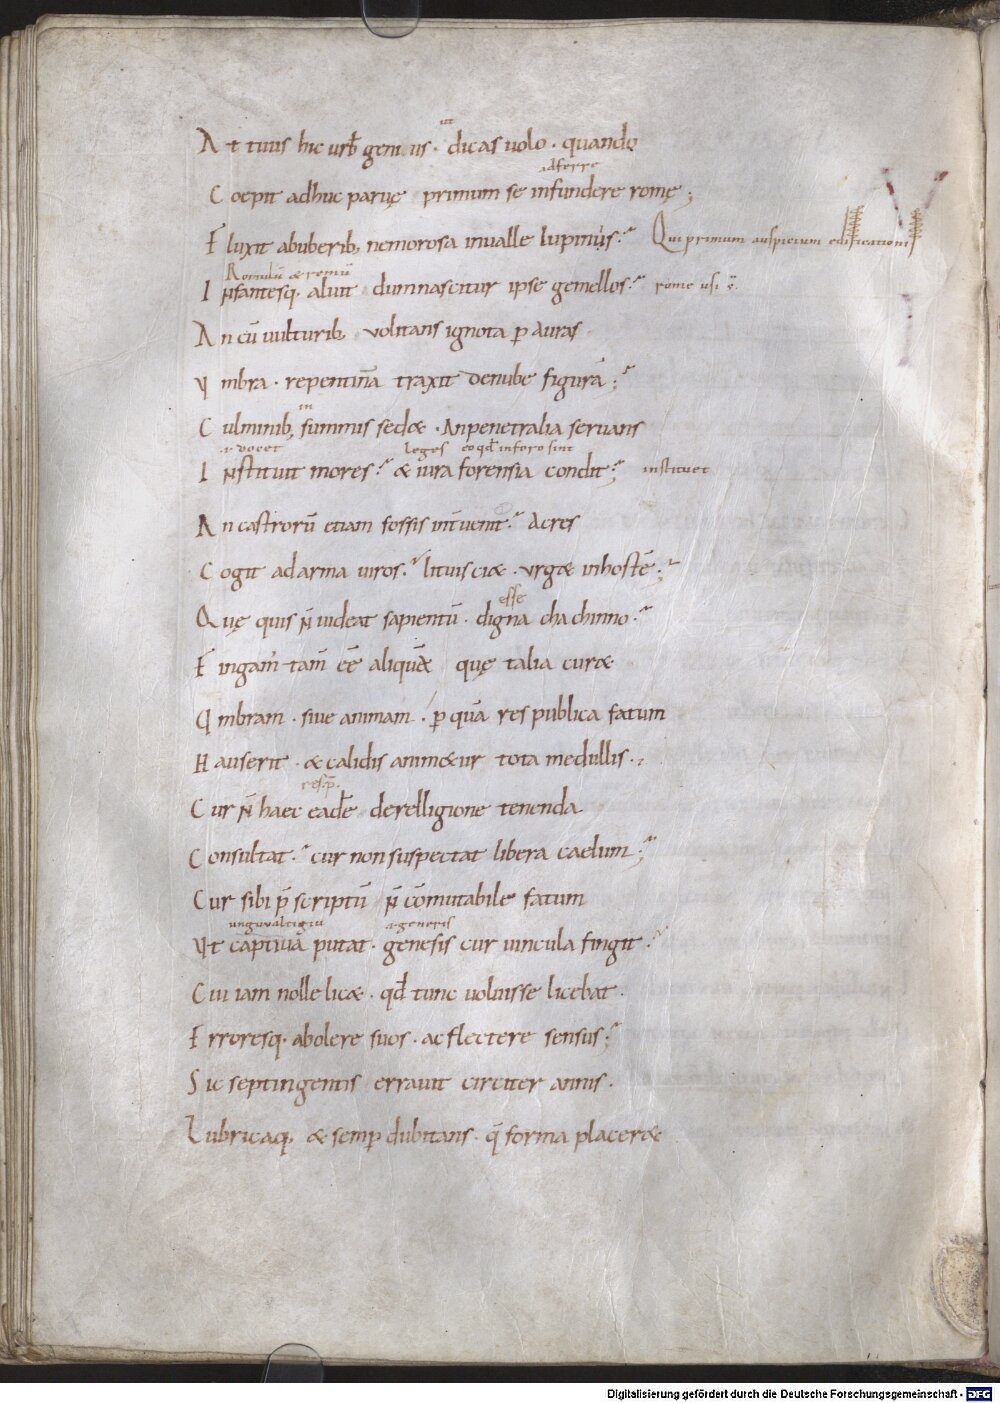 ut
At tuus hic urb̄ genius · dicas uolo · quando
adferre
Coepit adhuc paruę primum se infundere romę ;
Fluxit abuberib; nemorosa inualle lupinus : Qui primum auspicium edificationi
Romulū & remū
Infantesq· aluit dumnascitur ipse gemellos : rome usi s̄
An cū uulturib; uolitans ignota p auras
Vmbra · repentinā traxit denube figurā ;
in
Culminib; summis sed& · An penetralia seruans
leges eo qđ inforo sint
Instituit mores : & iura forensia condit ; instituet
An castrorū etiam fossis int̄uenit : Acres
Cogit adarma uiros : lituis ci& · urg& inhostē ;
esse
Quę quis n̄ uideat sapientū · digna chachinno :
Fingam̄ tam̄ eē aliquē& quę talia cur&
Vmbram · siue animam · p quā res publica fatum
Hauserit · & calidis anim&ur tota medullis ·
resp̄.
Cur n̄ haec eadē derelligione tenenda
Consultat · cur non suspectat libera caelum ;
Cur sibi p̄scriptū n̄ cōmutabile fatum
Vt captiuā putat · genesis cur uincula fingit :
Cui iam nolle lic& · qđ tunc uoluisse licebat ·
Erroresq· abolere suos · ac flectere sensus :
Sic septingentis errauit circiter annis ·
Lubricaq; & semp dubitans · q̄ forma placer&
Digitalisierung gefördert durch die Deutsche Forschungsgemeinschaft - DFG